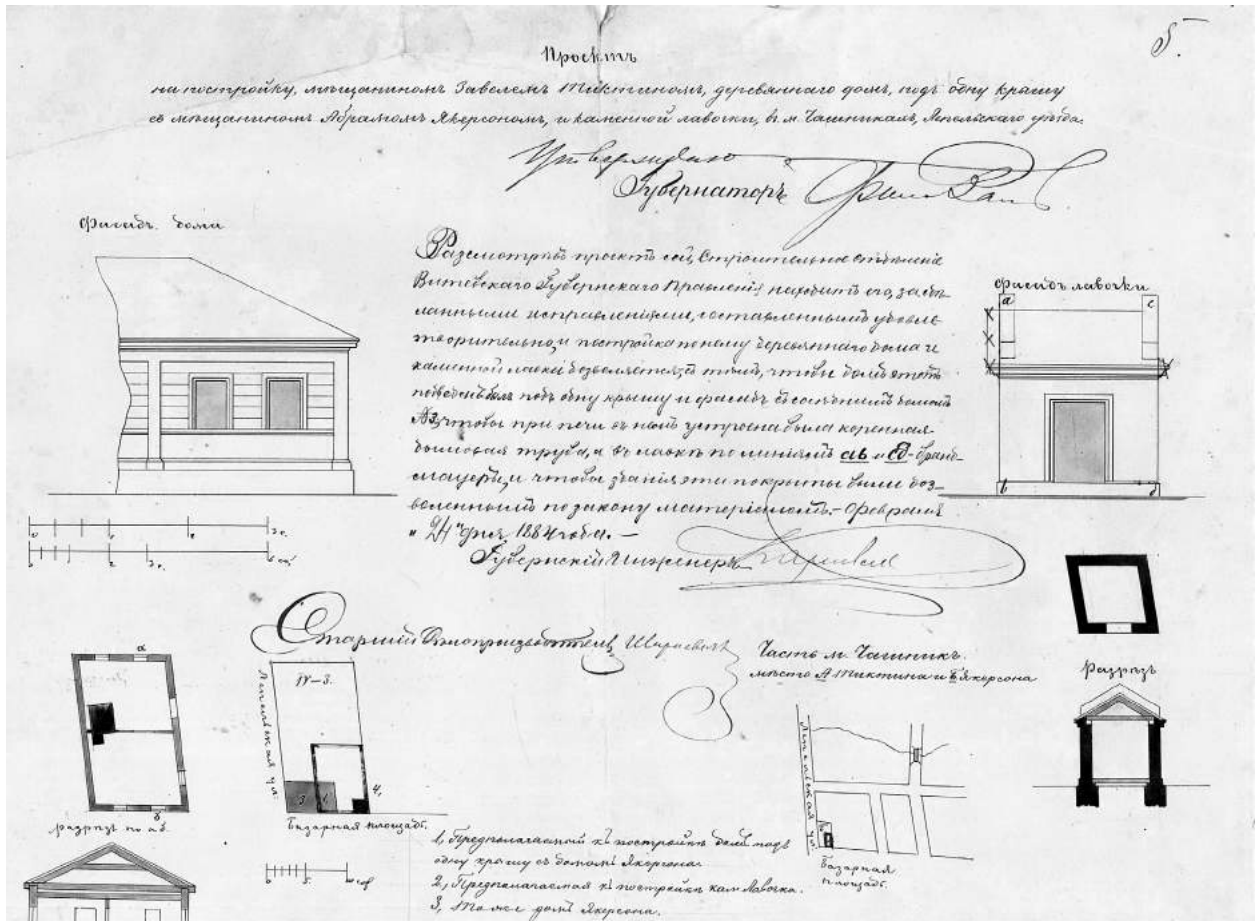 5.
Проектъ
на постройку, мѣщаниномъ Завелемъ Тиктиномъ, деревяннаго дома, подъ одну крышу
съ мѣщаниномъ Абрамомъ Якерсономъ, и каменной лавочки, въ м. Чашникахъ, Лепельскаго уѣзда.
Утверждаю
Губернаторъ
Фасадъ дома
Разсмотрѣвъ проектъ сей, Строительное отдѣленіе
Витебскаго Губернскаго Правленія находитъ его, за сдѣ-
ланными исправленіями, составленнымъ удовле-
творительно, и постройка по нему деревяннаго дома и
каменной лавки дозволяется, съ тѣмъ, чтобы домъ этотъ
подъ одну крышу и фасадъ съ домомъ
№3, чтобы при печи въ немъ устроена была коренная
дымовая труба, а въ лавкѣ по линіямъ ав и сд - бранд-
мауеры, и чтобы зданія эти покрыты были доз-
воленнымъ по закону матеріаломъ. - Февраля
"24" дня 1884 года. -
Губернскій Инженеръ
Фасадъ лавочки
а с
в д
Старшій Дѣлопроизводитель
Часть м. Чашникъ.
мѣсто А Тиктина и Б Якерсона
Разрѣзъ
а
в
разрѣзъ по ав.
IV-3.
Лепельская ул.
3 1 4.
Базарная площадь.
Лепельская ул.
Базарная
площадь.
1, Предполагаемый къ постройкѣ домъ подъ
одну крышу съ домомъ Якерсона.
2, Предполагаемая къ постройкѣ кам. Лавочка.
3, домъ Якерсона.